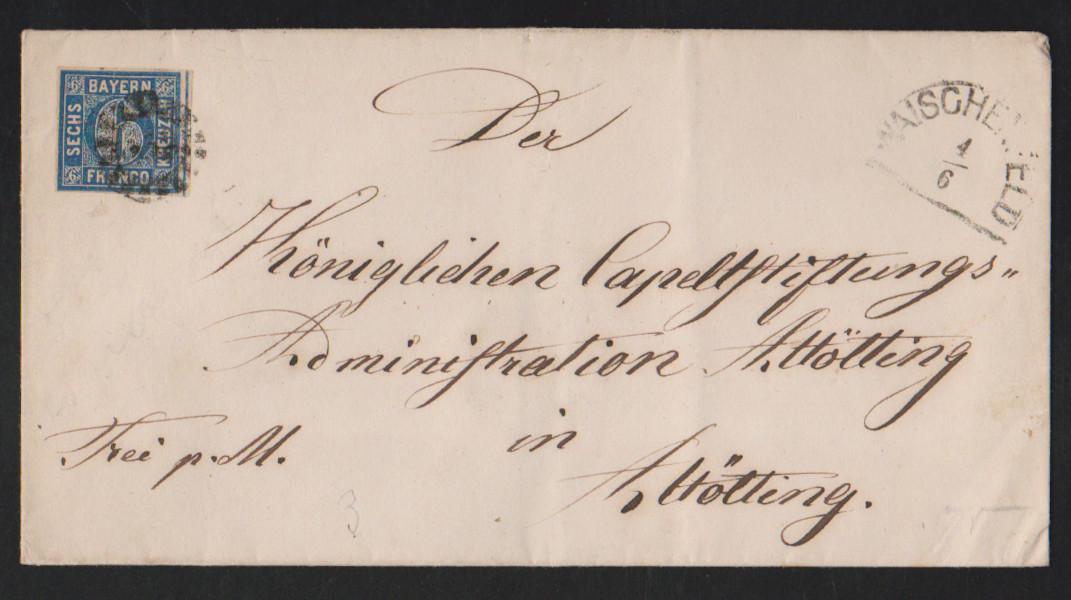 BAYERN
SECHS
6
KREUZER
FRANCO
WAISCHENFELD
4
6
Der
Königlichen Capellstiftungs-
Administration Altötting
in
Altötting.
Frei p. M.
3